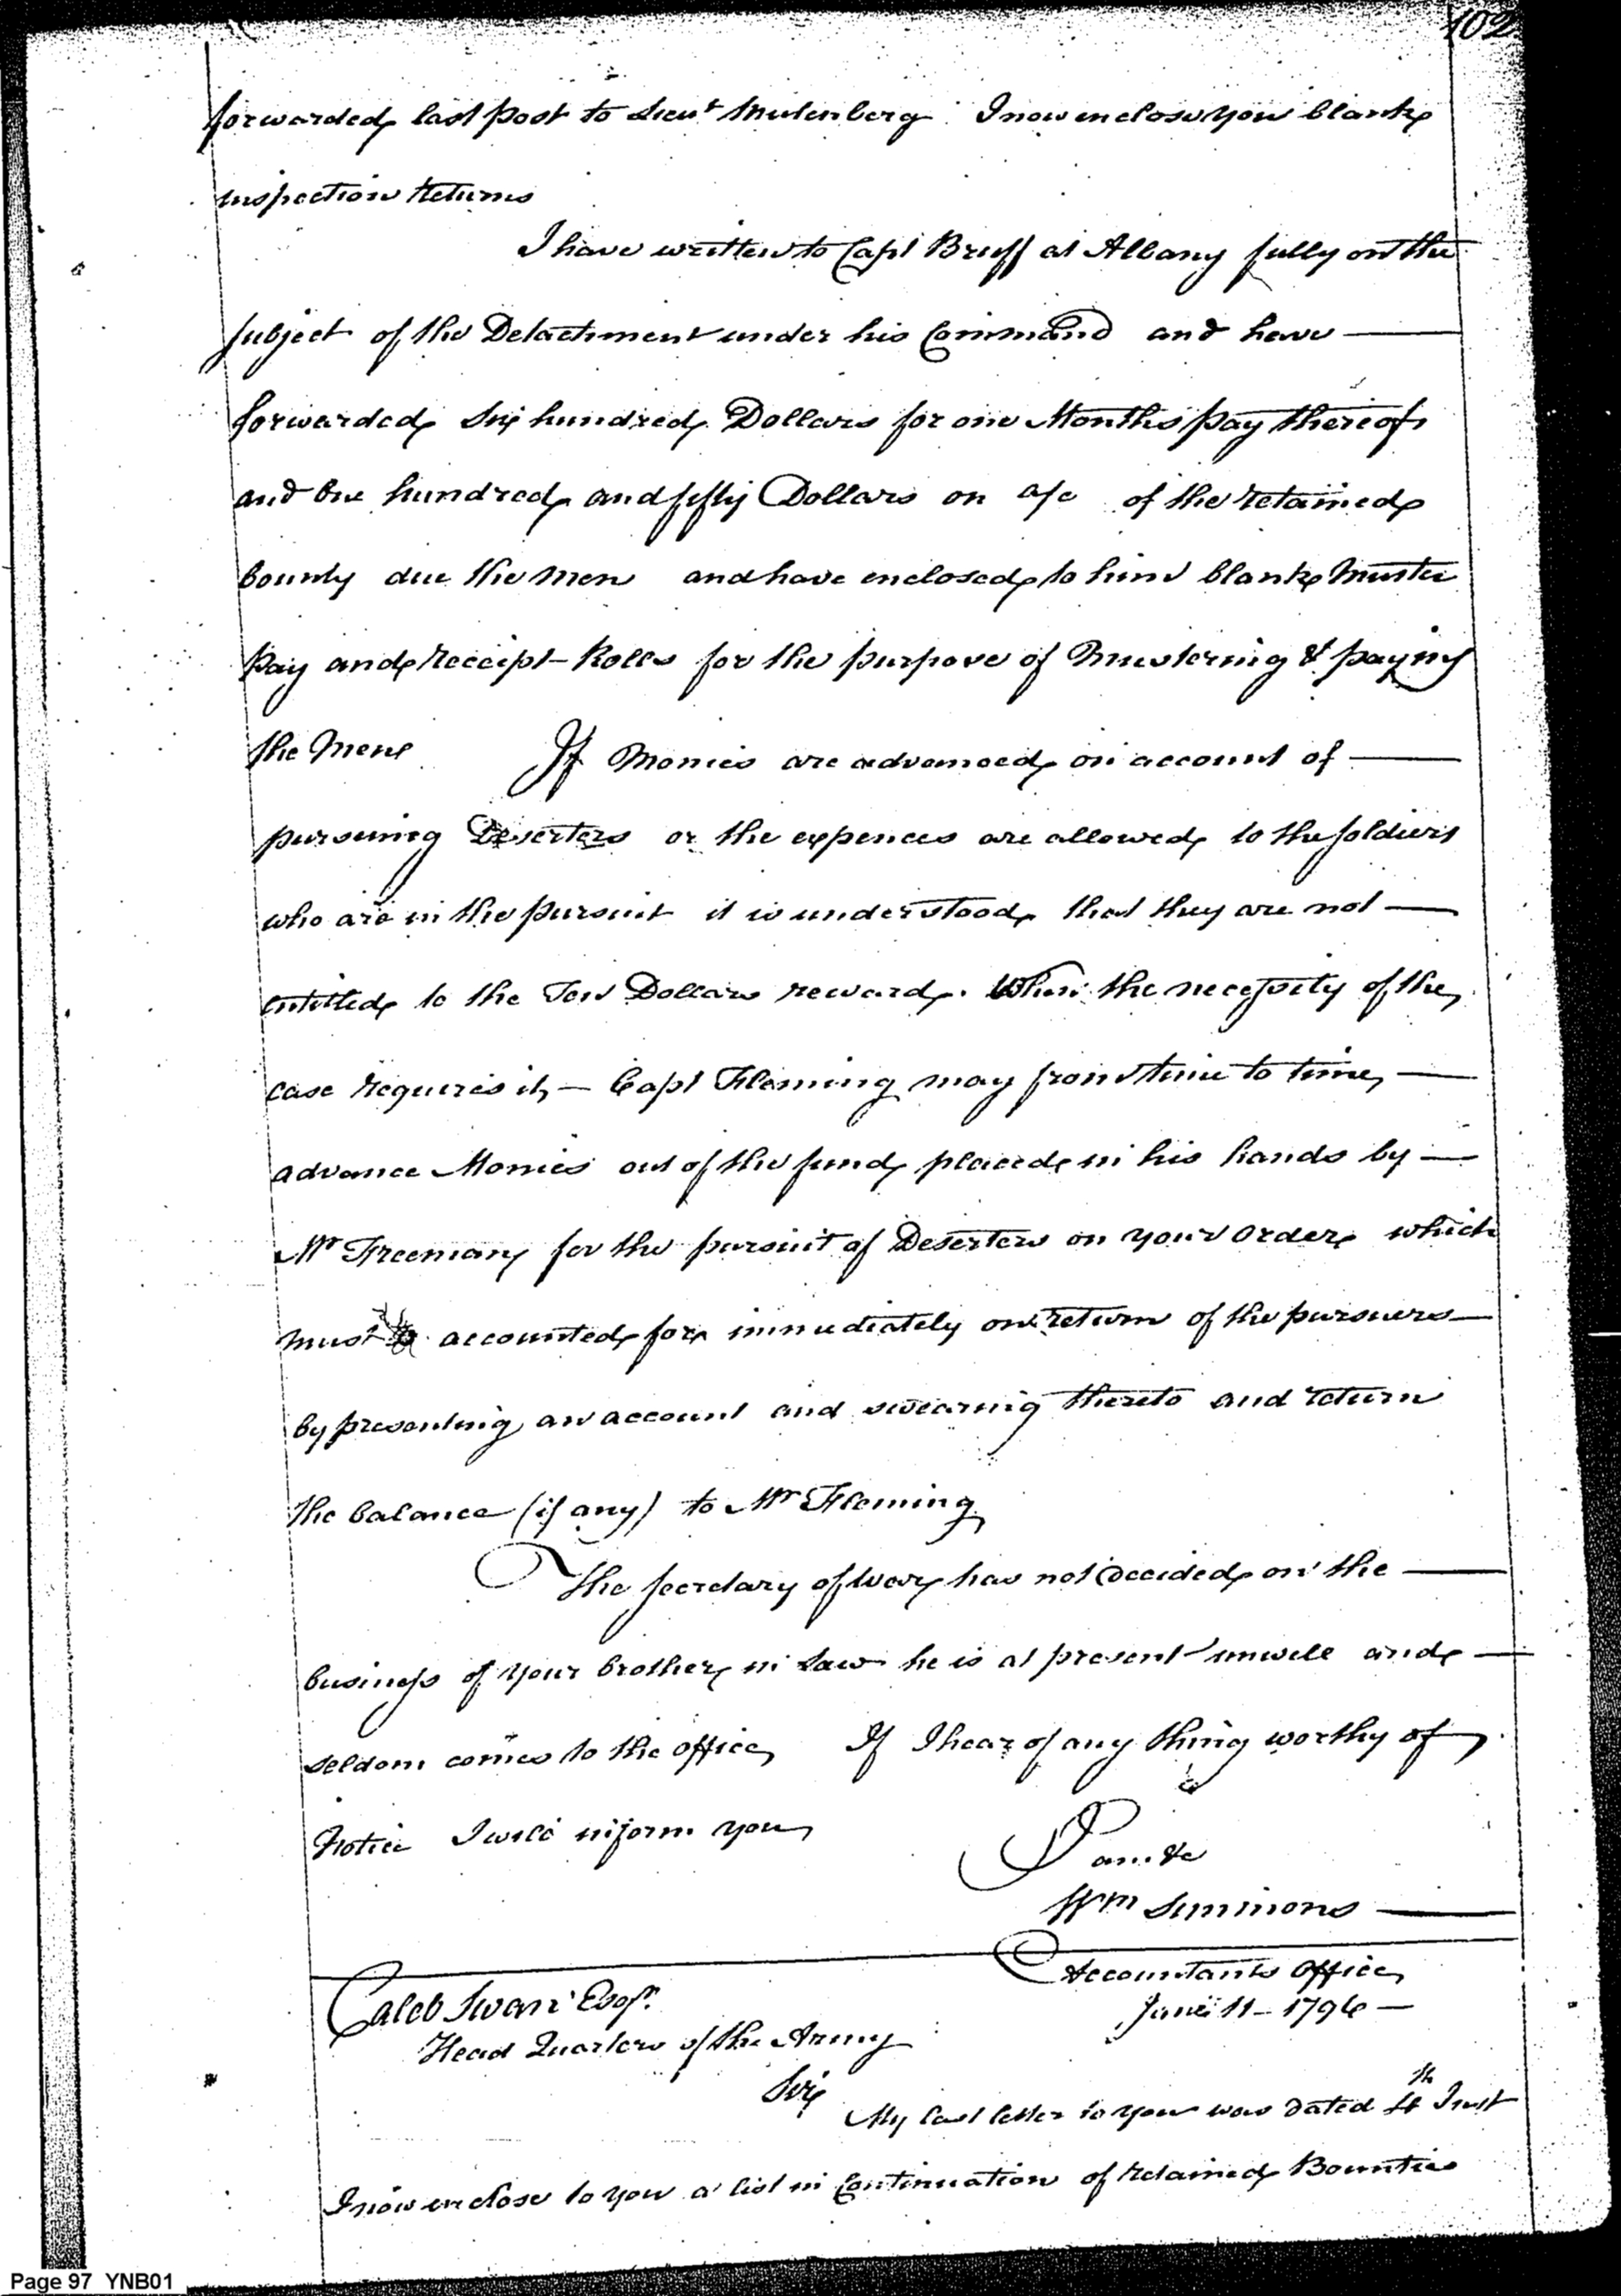 102
forwarded last post to Lieut Mulenberg I now enclose you blank
inspection Returns
I have written to Capt Bruff at Albany fully on the
subject of the Detachment under his Command and have —
forwarded Six hundred Dollars for one Months pay thereof
and One hundred and fifty Dollars on a/c of the retained
bounty due the Men and have enclosed to him blank Muster
Pay and receipt-Rolls for the purpose of Mustering & paying
the Men If Monies are advanced on account of —
pursuing Deserters or the expences are allowed to the soldiers
who are in the pursuit it is understood that they are not —
entitled to the Ten Dollars reward. When the necessity of the
case requires it, — Capt Fleming may from time to time, —
advance Monies out of the fund placed in his hands by —
Mr Freeman for the pursuit of Deserters on your order which
must be accounted for immediately on return of the pursuers —
by presenting an account and swearing thereto and return
the balance (if any) to Mr Fleming
The Secretary of War has not decided on the —
business of your brother in Law he is at present unwell and —
seldom comes to the office, If I hear of any thing worthy of
Notice I will inform you
I am &c
Wm Simmons —
Accountants Office,
June 11 - 1796 —
Caleb Swan Esqr.
Head Quarters of the Army
Sir
My last letter to you was dated 4th Inst
I now enclose to you a list in Continuation of retained Bounties
Page 97 YNB01